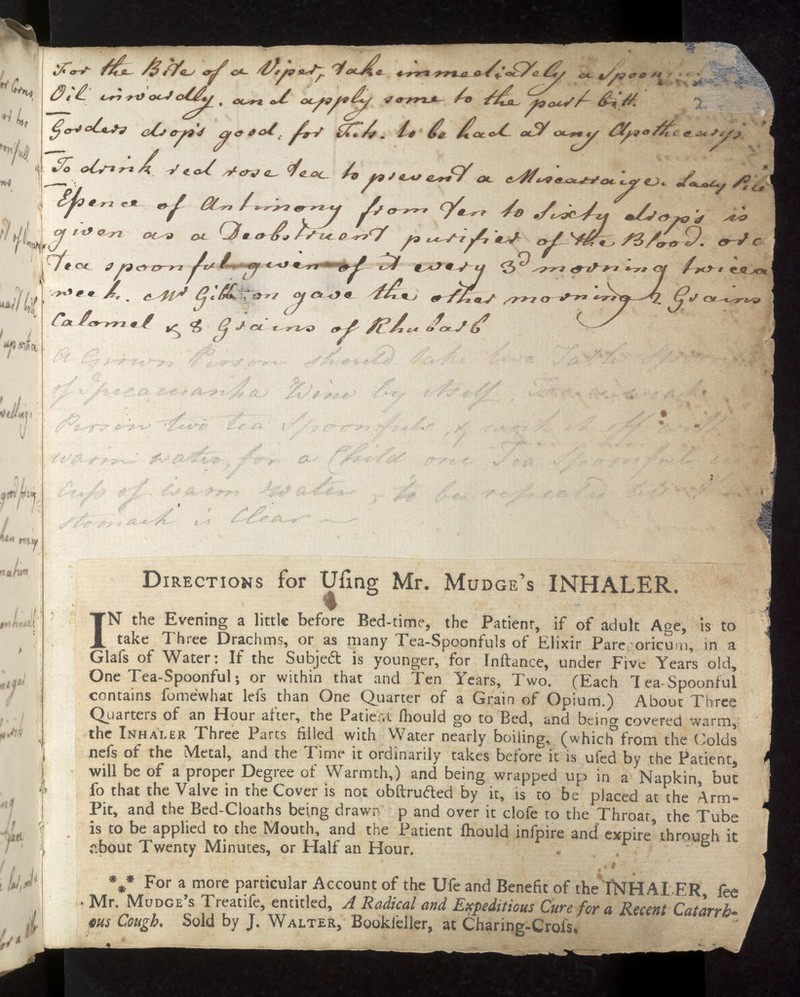 For the Bite of a Viper, take immediately a Spoon
Oil inwardly. and apply some to the part bitt. 2
Gorders drops good, for Fits. to be had at any Apothecarys
To drink red rose tea to prevent a Miscarraige. Lady
Essence of Antimony from Ten to Sixty drops is
given as a Deobstruent purifier of the Blood. or a
Tea spoonful given of it every 3d morning twice a
week. Mr gave the other morning 2 Grains
Calomel & 8 Grains of Rhubarb
A Grown Person should take two Table
of Ipecacuanha Wine by itself,
Person two tea Spoonfuls, & work it off with
warm water, for a Child one Tea Spoonful in
Cups of warm water, to be repeated till the
stomach is Clear
DIRECTIONS for Uſing Mr. MUDGE's INHALER.
IN the Evening a little before Bed-time, the Patient, if of adult Age, is to
take Three Drachms, or as many Tea-Spoonfuls of Elixir Paregoricum, in a
Glaſs of Water: If the Subject is younger, for Inſtance, under Five Years old,
One Tea-Spoonful; or within that and Ten Years, Two. (Each Tea-Spoonful
contains ſomewhat leſs than One Quarter of a Grain of Opium.) About Three
Quarters of an Hour after, the Patient ſhould go to Bed, and being covered warm,
the INHALER Three Parts filled with Water nearly boiling, (which from the Colds
neſs of the Metal, and the Time it ordinarily takes before it is uſed by the Patient,
will be of a proper Degree of Warmth,) and being wrapped up in a Napkin, but
ſo that the Valve in the Cover is not obſtructed by it, is to be placed at the Arm-
Pit, and the Bed-Cloaths being drawn p and over it cloſe to the Throat, the Tube
is to be applied to the Mouth, and the Patient ſhould inſpire and expire through it
about Twenty Minutes, or Half an Hour.
*** For a more particular Account of the Uſe and Benefit of the INHALER, ſee
Mr. MUDGE's Treatiſe, entitled, A Radical and Expeditious Cure for a Recent Catarrh-
ous Cough. Sold by J. WALTER, Bookſeller, at Charing-Croſs.